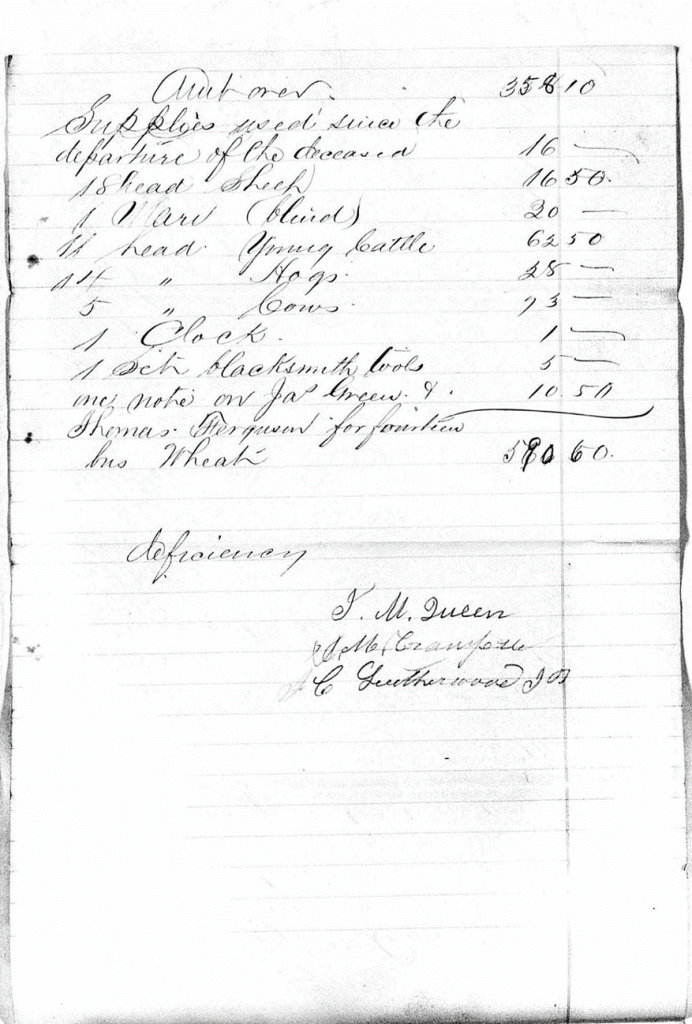 Amt over. 358 10
Supplies used since the
departure of the deceased 16 —
18 head Sheep 16 50.
1 Mare (blind) 20 —
11 head Young Cattle 62 50
14 " Hogs. 28 —
5 " Cows. 73 —
1 Clock. 1 —
1 Set blacksmith tools 5 —
one note on Jas Green. & . 10. 50
Thomas Ferguson for fourteen
bus Wheat 580 60.
deficiency
J. M. Queen
M
C Leatherwood J P